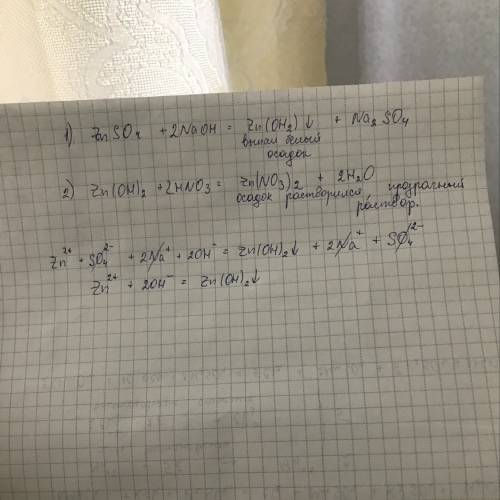 1) ZnSO₄ + 2NaOH = Zn(OH₂)↓ + Na₂SO₄
выпал белый
осадок
2) Zn(OH)₂ + 2HNO₃ = Zn(NO₃)₂ + 2H₂O
осадок растворился, прозрачный
раствор.
Zn²⁺ + SO₄²⁻ + 2Na⁺ + 2OH⁻ = Zn(OH)₂↓ + 2Na⁺ + SO₄²⁻
Zn²⁺ + 2OH⁻ = Zn(OH)₂↓